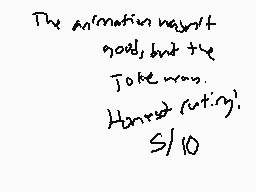 The animation wasn't
good, but the
Joke was.
Honest rating:
5/10